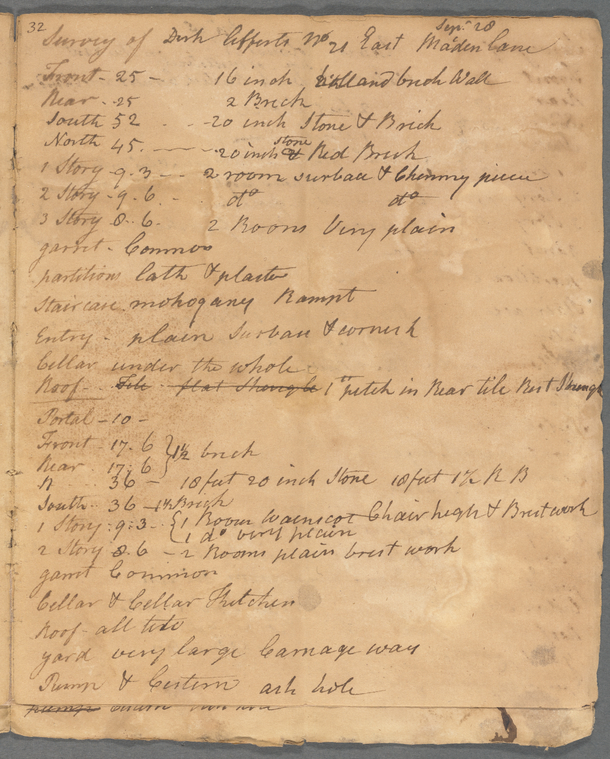 32
Sepr. 28
Survey of Dirk Lefferts No 21 East Maden Lane
Front - 25 - 16 inch holland brick Wall
Rear - 25 2 Brick
South 52 - 20 inch Stone & Brick
North 45. - 20 inch Stone & Red Brick
1 Story - 9. 3 - 2 room surbase & Chimny piece
2 Story - 9. 6. - do do
3 Story 8. 6. 2 Rooms Very plain
garret - Common
partitions lath & plaster
Staircase mohogany Rampt
Entry - plain Surbase & cornish
Cellar under the whole
Roof - Tile flat Shingle 1st pitch in Rear tile Rest Shingle
Portal - 10 -
Front 17. 6 } 1½ brick
Rear 17. 6
N 36 - 18 feet 20 inch Stone 18 feet 1½ R B
South 36 - 1½ Brick
1 Story : 9: 3 - { 1 Room Wainscot Chair high & Brestwork
1 do very plain
2 Story 8. 6 - 2 Rooms plain brest work
garret Common
Cellar & Cellar Kitchen
Roof - all tile
yard very large Carriage way
Pump & Cestern ash hole
pump